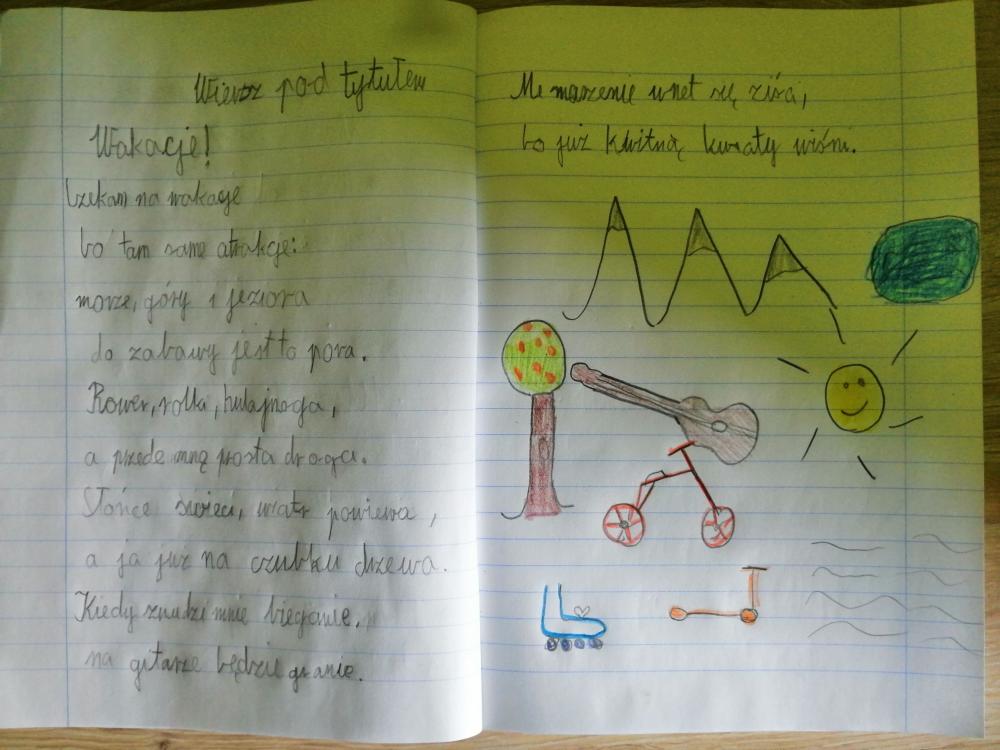 Wiersz pod tytułem
Wakacje!
Czekam na wakacje
bo tam same atrakcje:
morze, góry i jeziora
do zabawy jest to pora.
Rower, rolki, hulajnoga,
a przede mną prosta droga.
Słońce świeci, wiatr powiewa,
a ja już na czubku drzewa.
Kiedy znudzi mnie bieganie,
na gitarze będzie granie.
Me marzenie wnet się ziści,
bo już kwitną kwiaty wiśni.